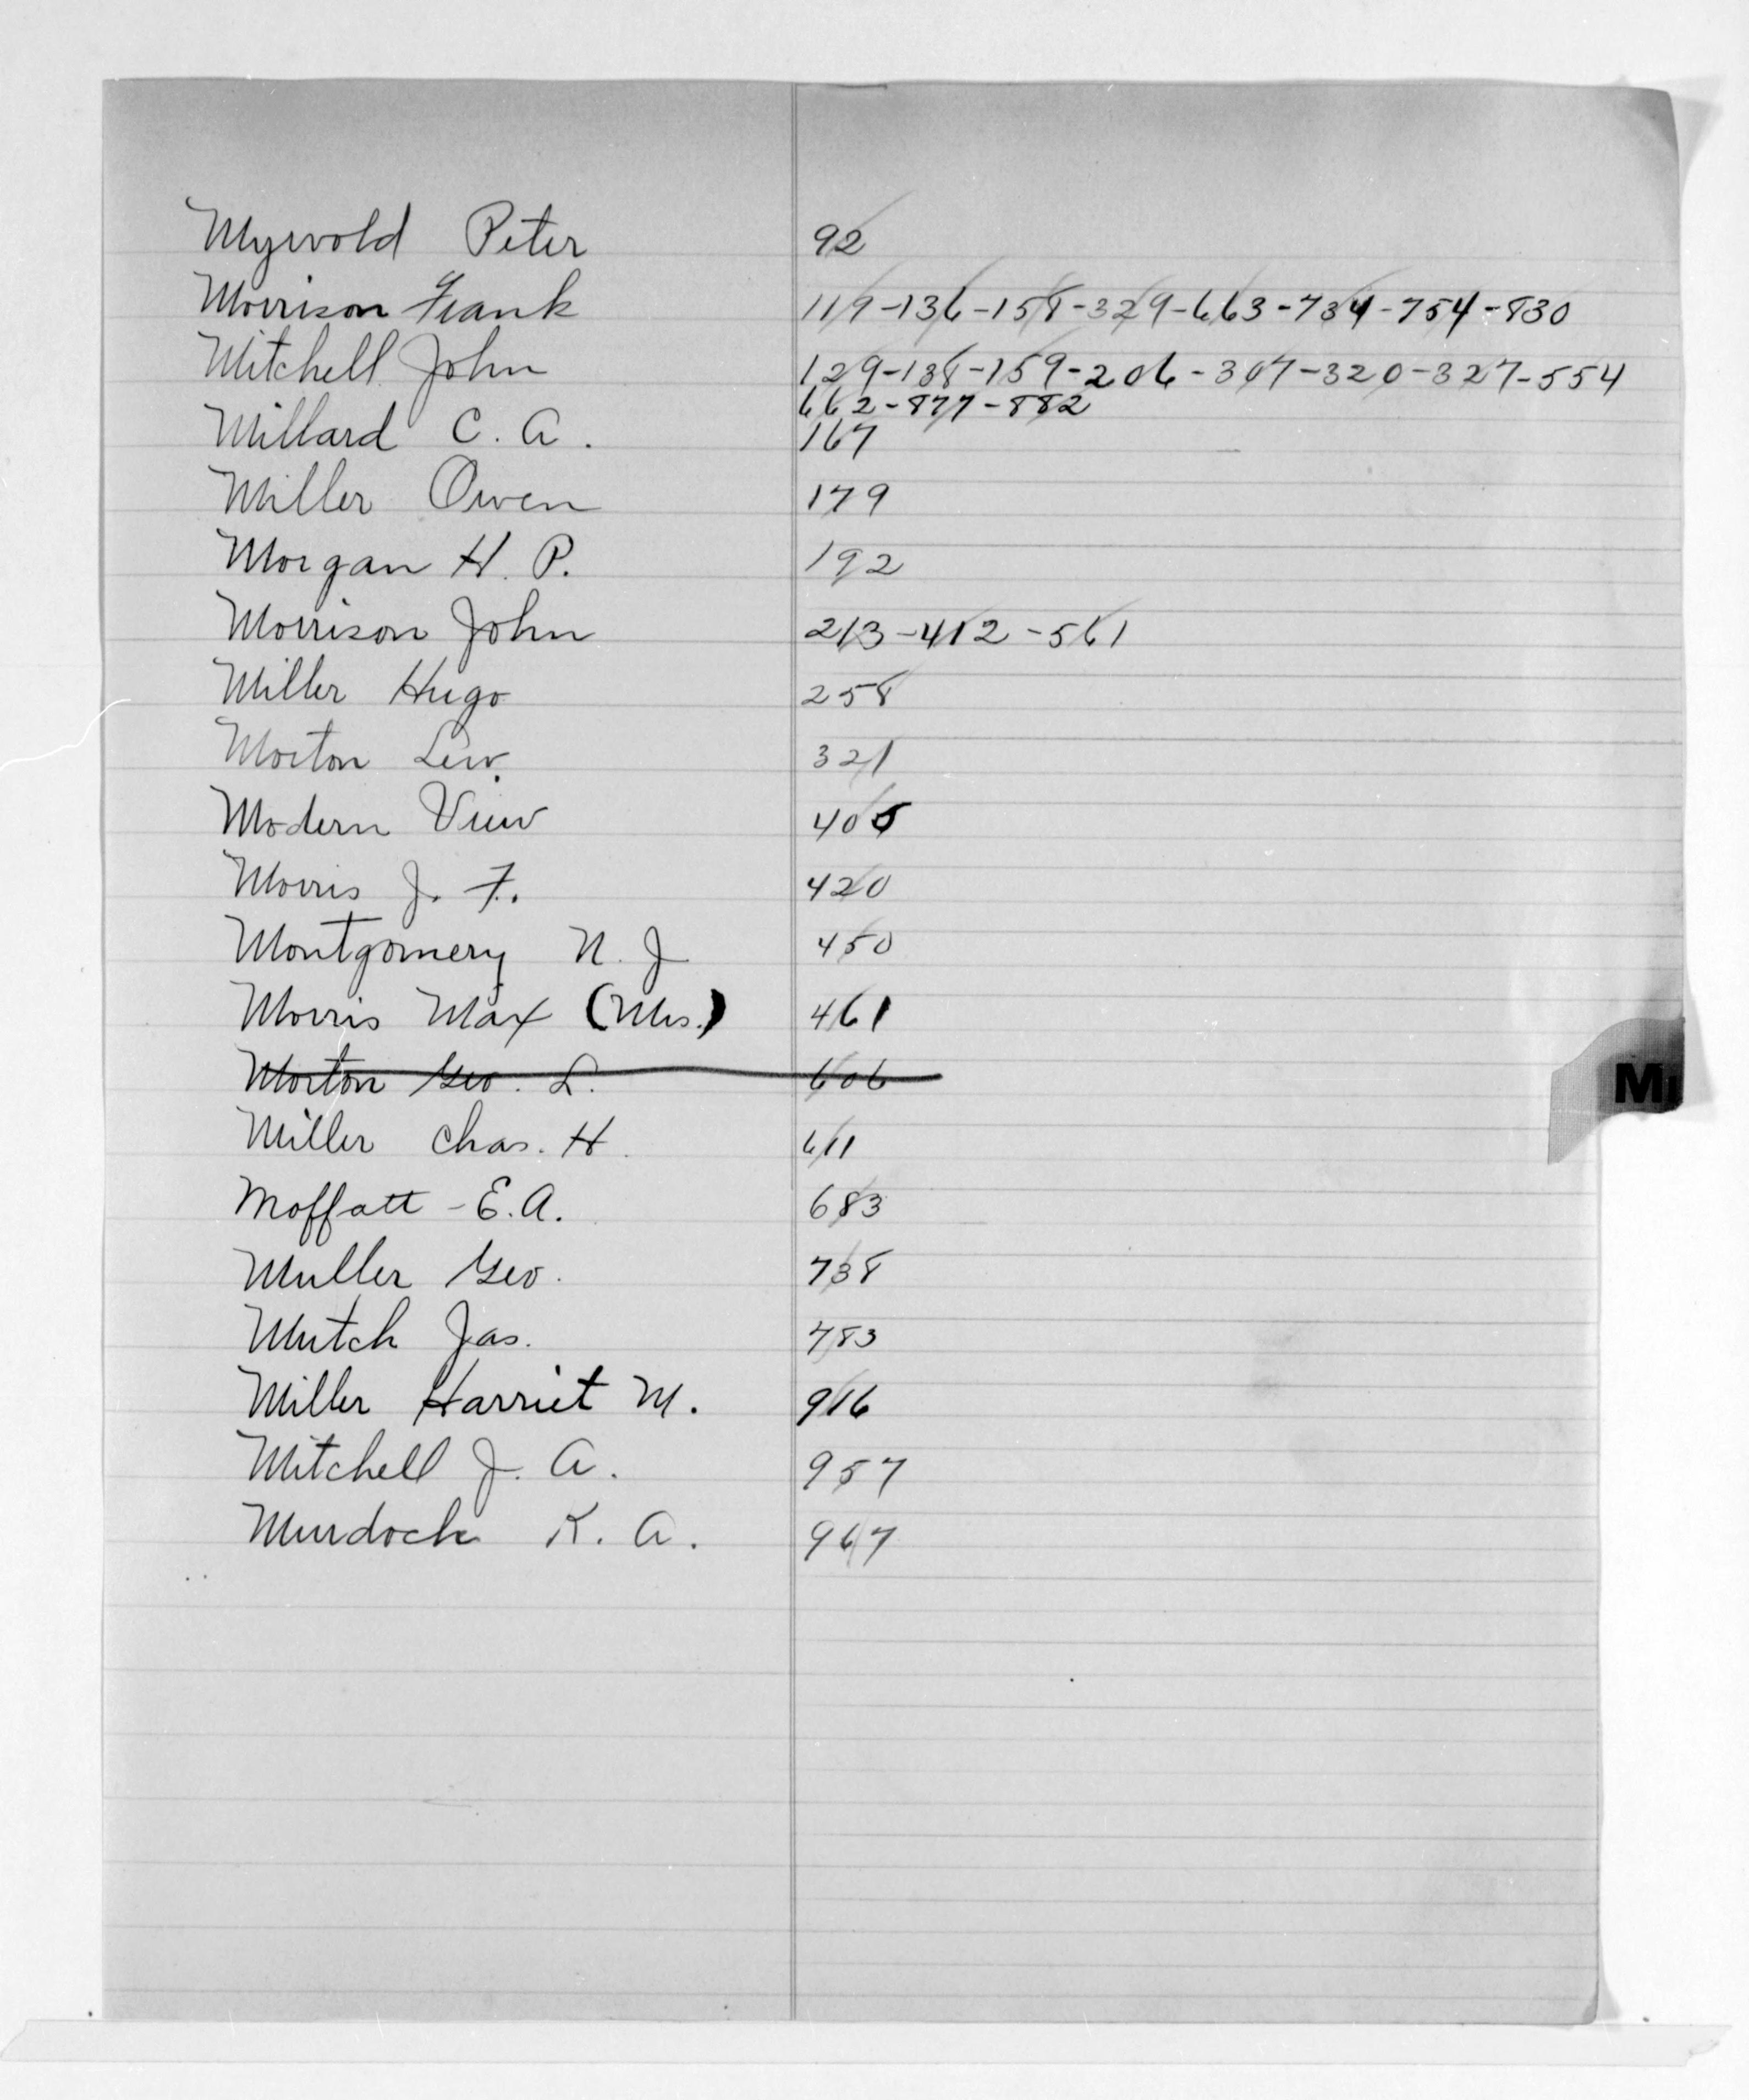 Myrvold Peter 92
Morrison Frank 119-136-158-329-663-734-754-830
Mitchell John 129-138-159-206-307-320-327-554
662-877-882
Millard C. A. 167
Miller Owen 179
Morgan H. P. 192
Morrison John 213-412-561
Miller Hugo 258
Morton Lew. 321
Modern View 405
Morris J. F. 420
Montgomery N. J 450
Morris Max (Mrs.) 461
Morton Geo. L. 606
Miller Chas. H. 611
Moffatt - E. A. 683
Muller Geo. 738
Mutch Jas. 783
Miller Harriet M. 916
Mitchell J. A. 957
Murdock K. A. 967